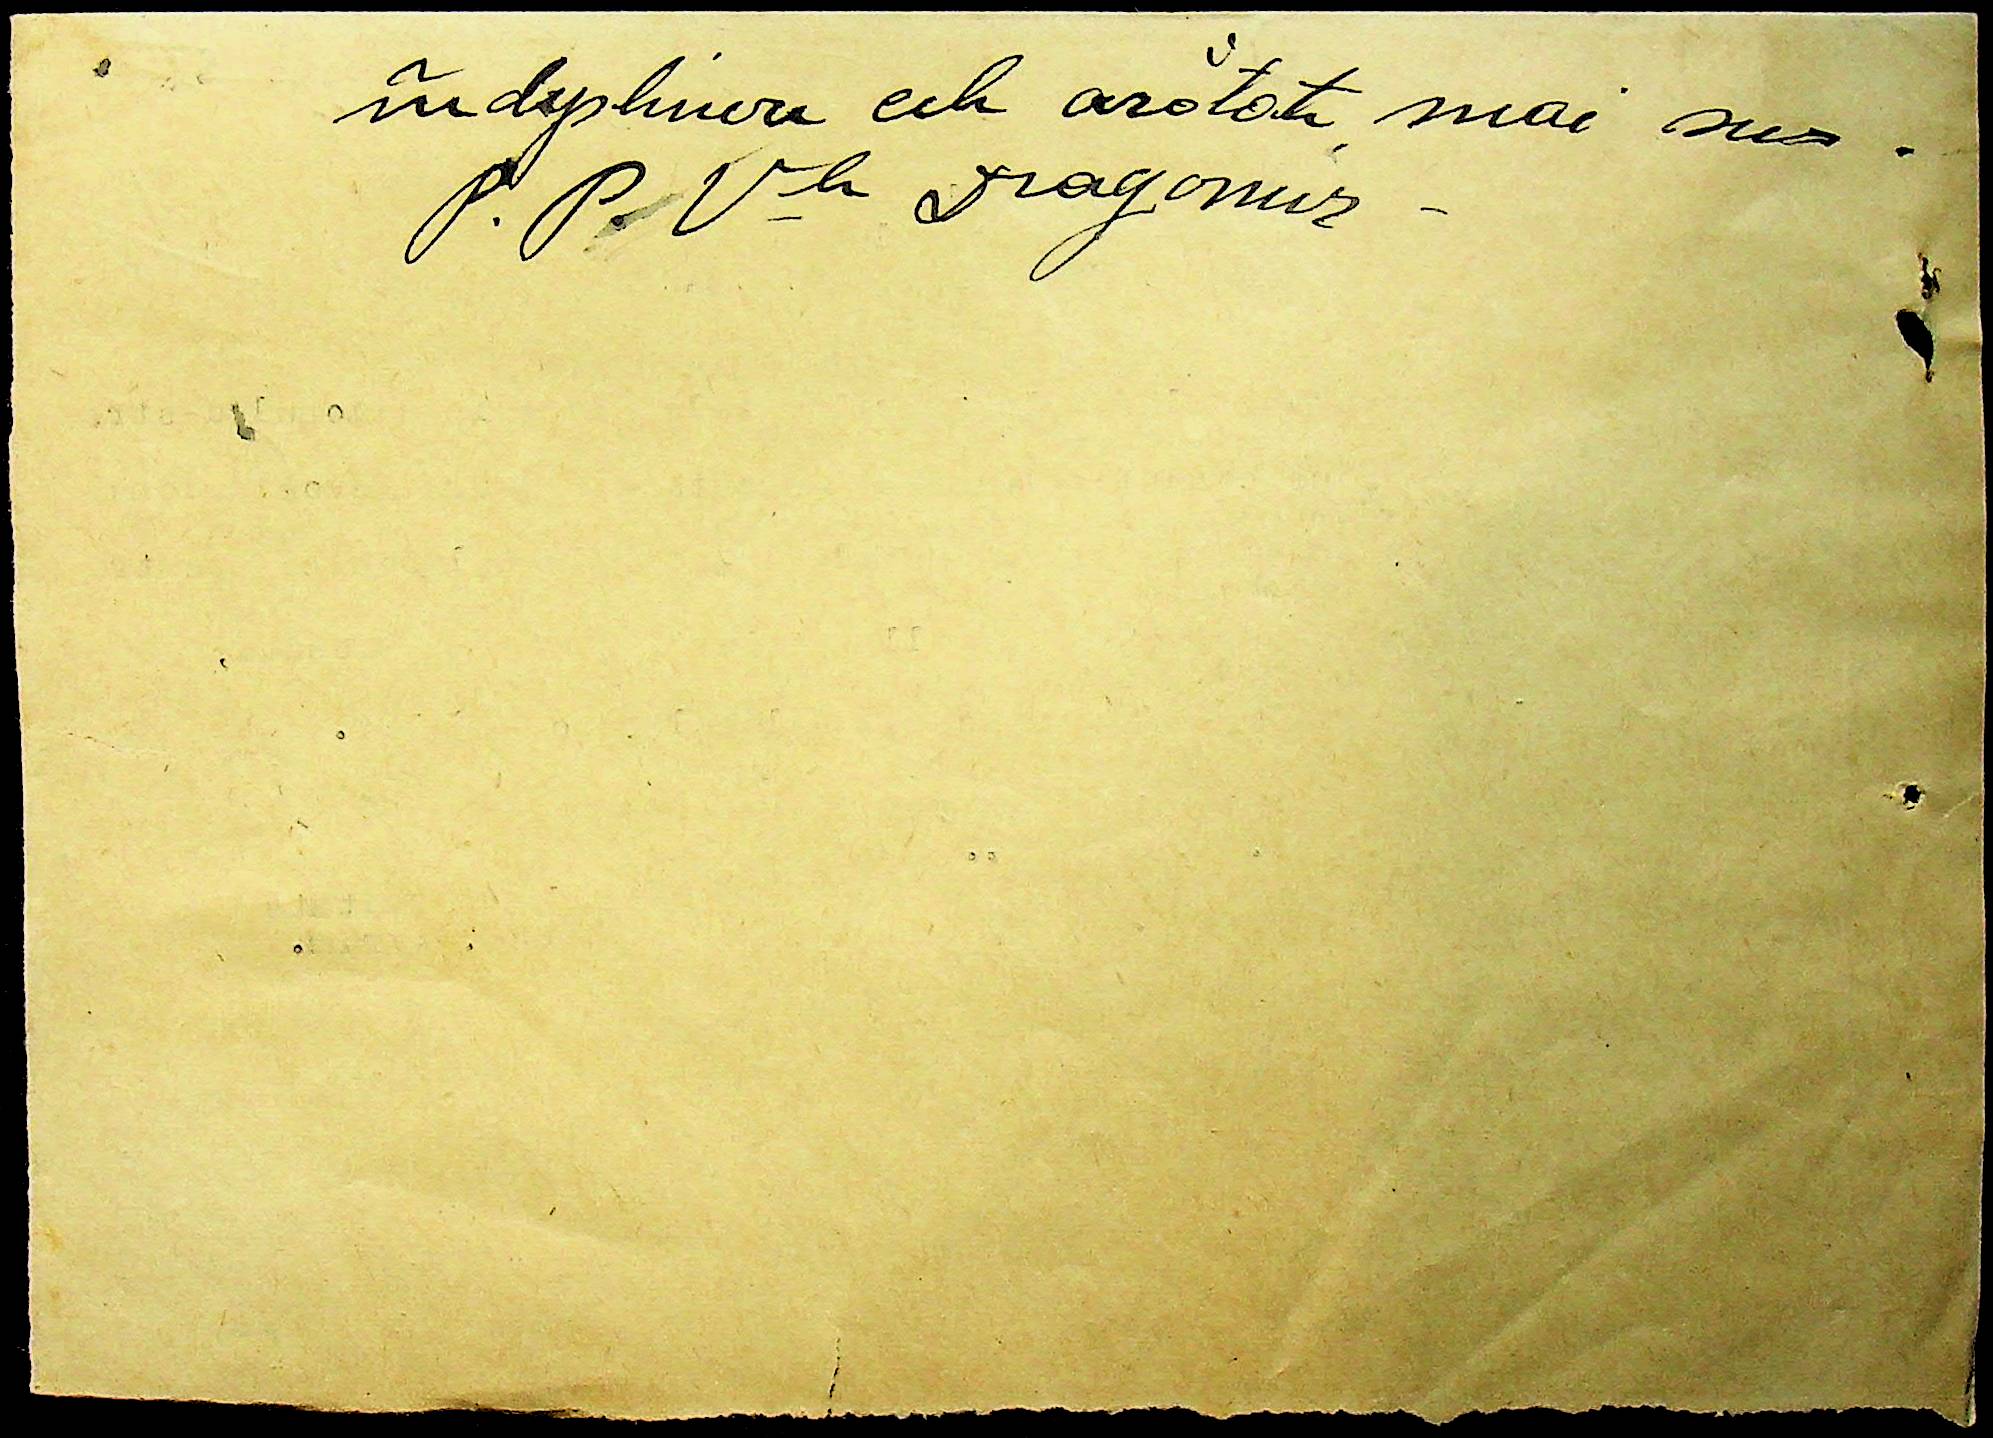 îndeplinira cele arătate mai sus.
P. P. V-le Dragomir -